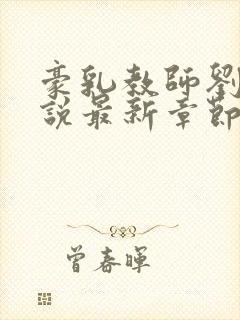 豪乳教師劉
說最新章節
曾春暉